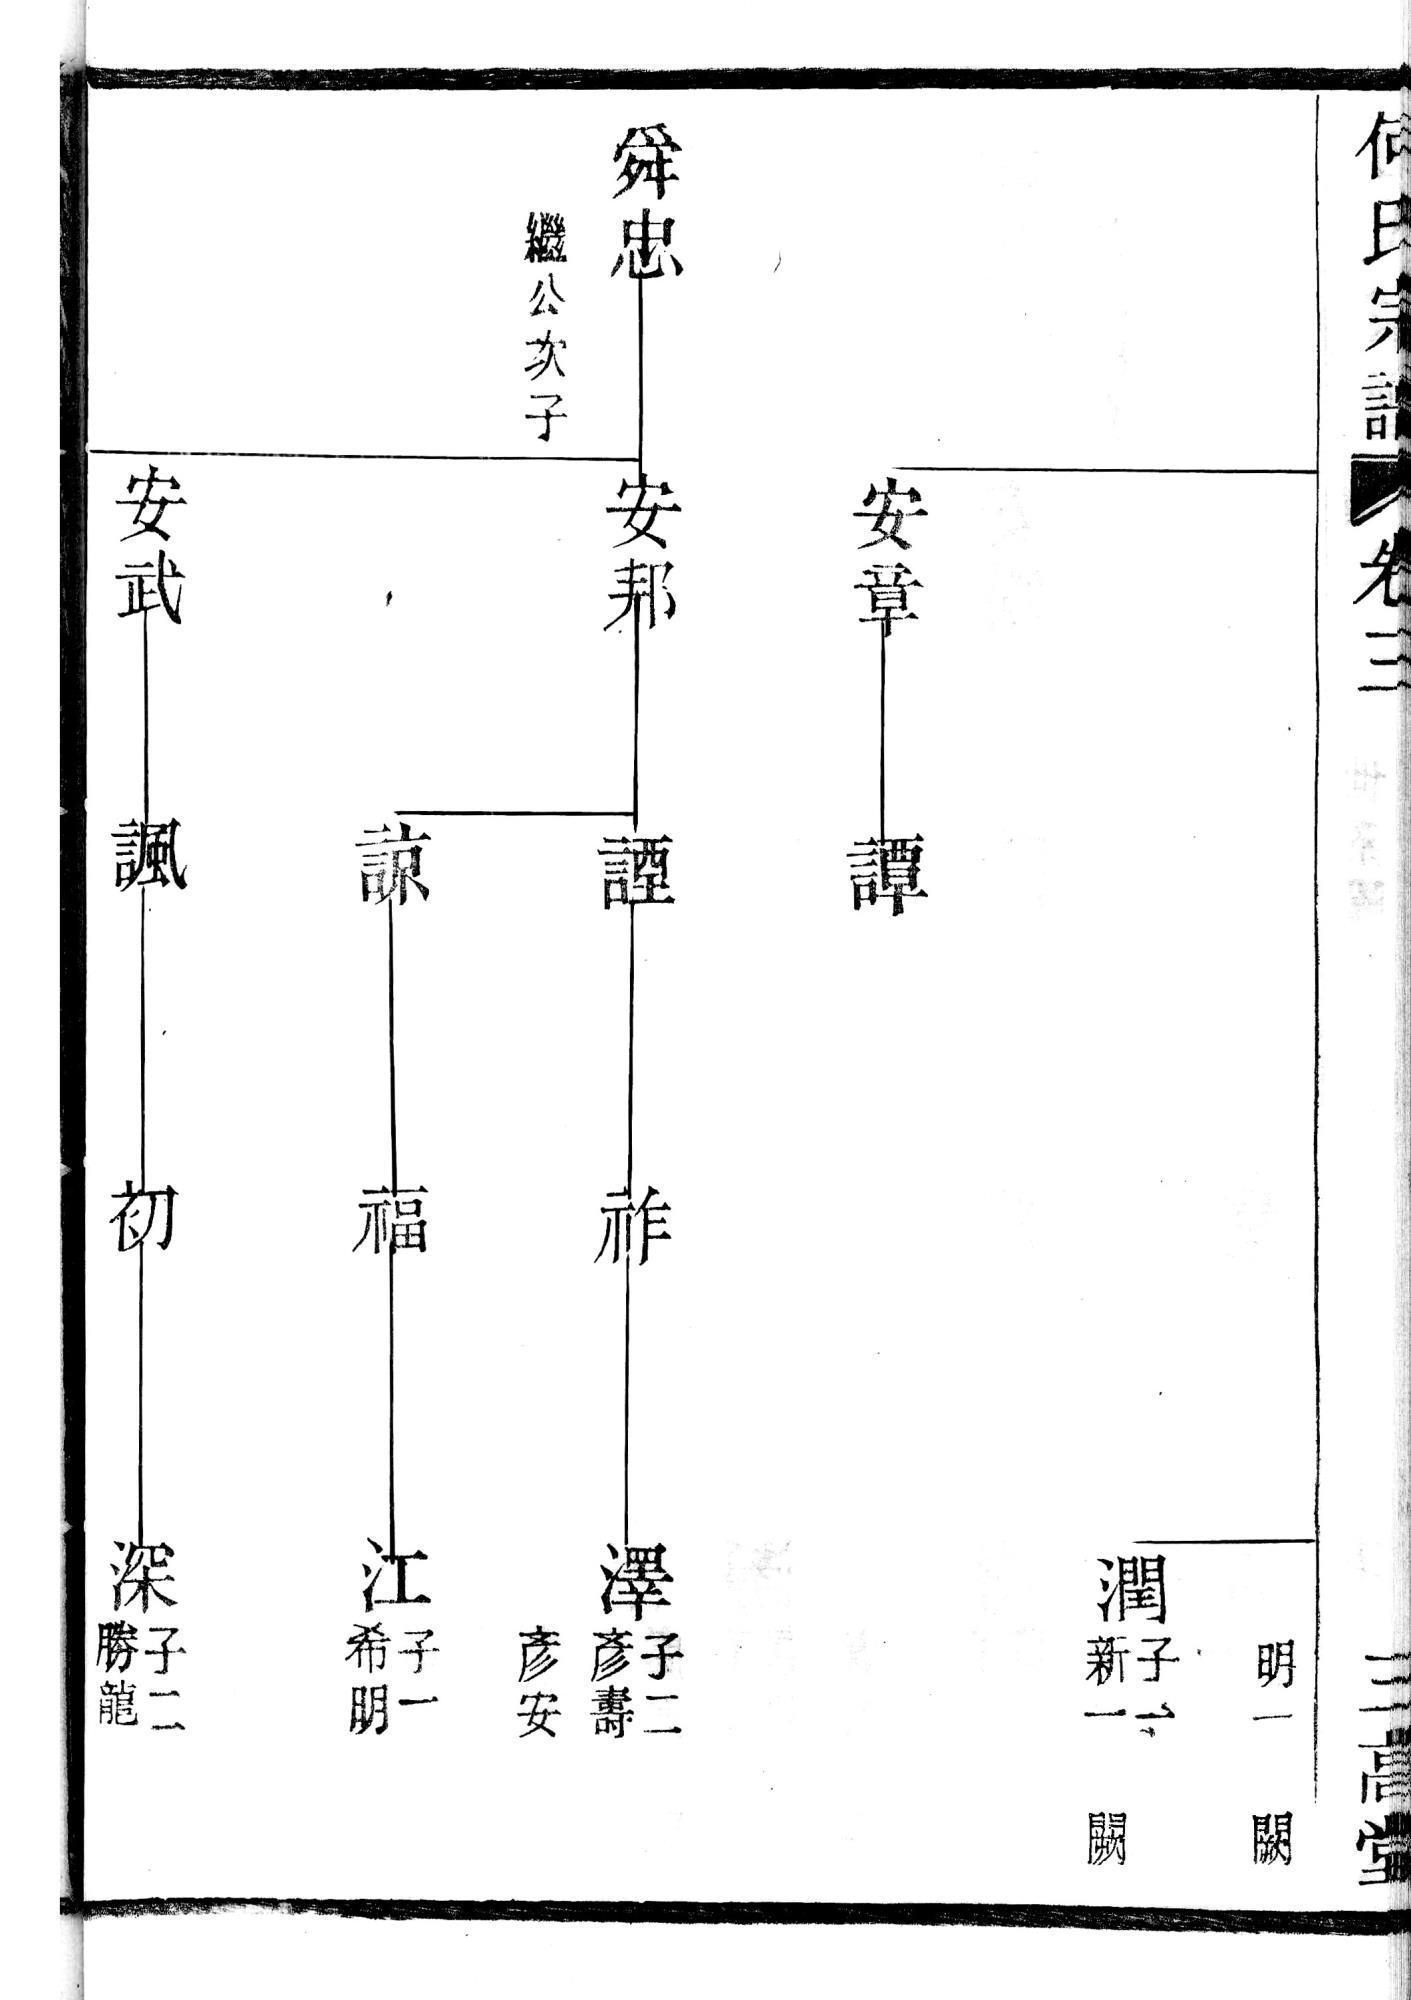 何氏宗譜
卷三
三高堂
明一 闕
潤
子一
新一 闕
安章
譚
舜忠
繼公次子
安邦
諲
祚
澤
子二
彥壽
彥安
諒
福
江
子一
希明
安武
諷
初
深
子二
勝龍